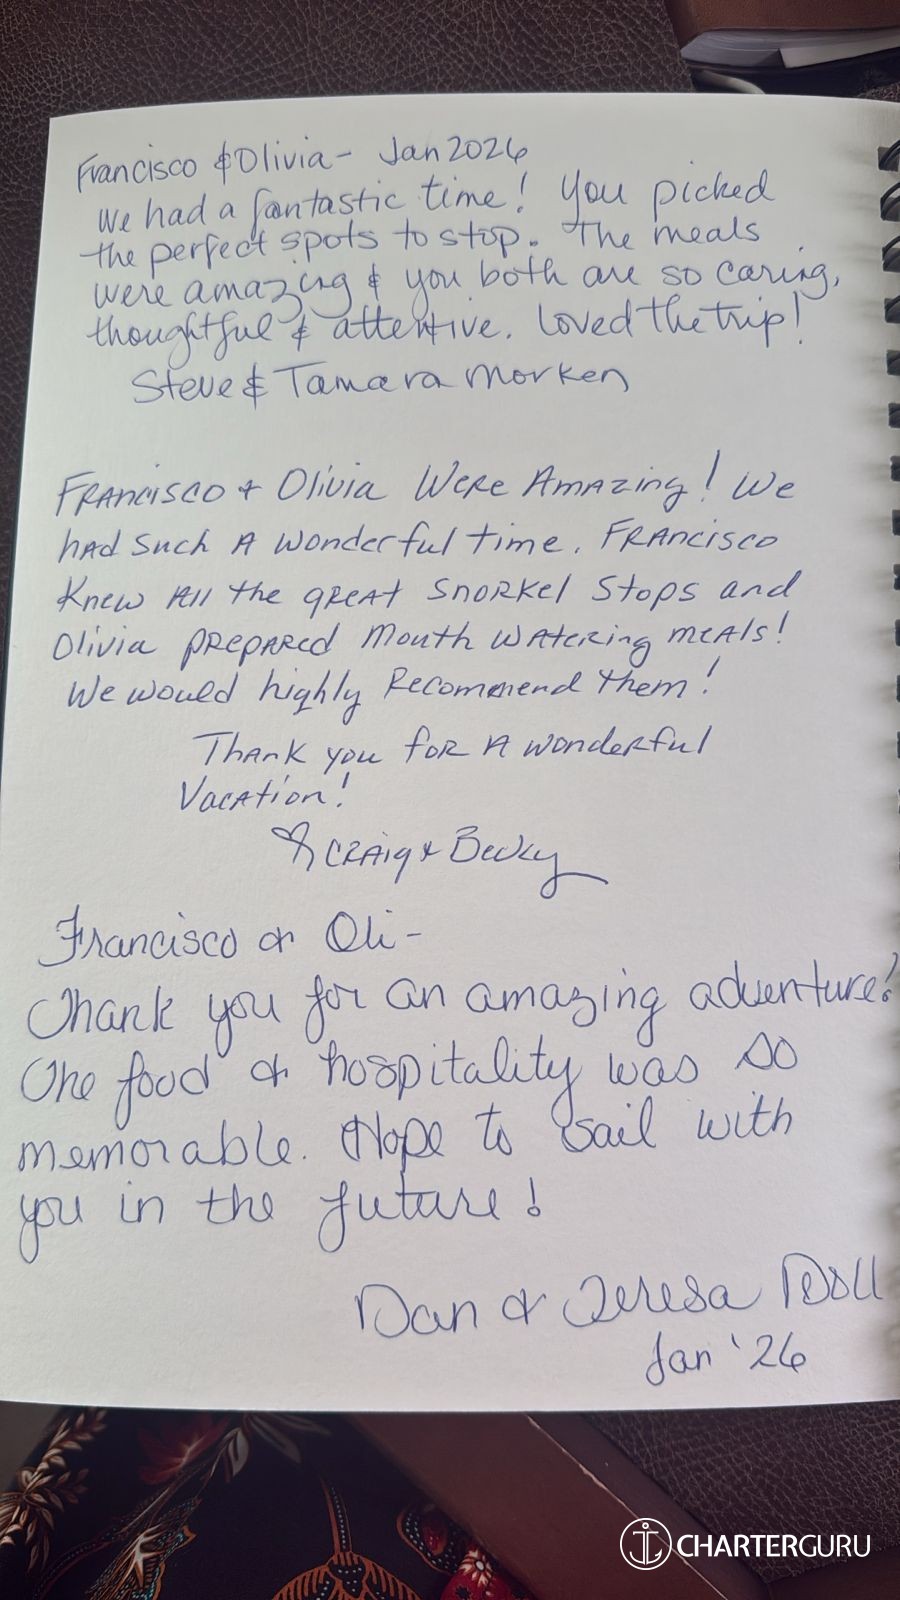 Francisco & Olivia - Jan 2026
We had a fantastic time! You picked
the perfect spots to stop. The meals
were amazing & you both are so caring,
thoughtful & attentive. Loved the trip!
Steve & Tamara Morken
Francisco + Olivia Were Amazing! We
had such a wonderful time. Francisco
Knew All the great snorkel stops and
Olivia prepared mouth watering meals!
We would highly Recommend them!
Thank you for a wonderful
Vacation!
Craig + Becky
Francisco & Oli -
Thank you for an amazing adventure!
The food & hospitality was so
memorable. Hope to sail with
you in the future!
Dan & Teresa Doll
Jan '26
CHARTERGURU